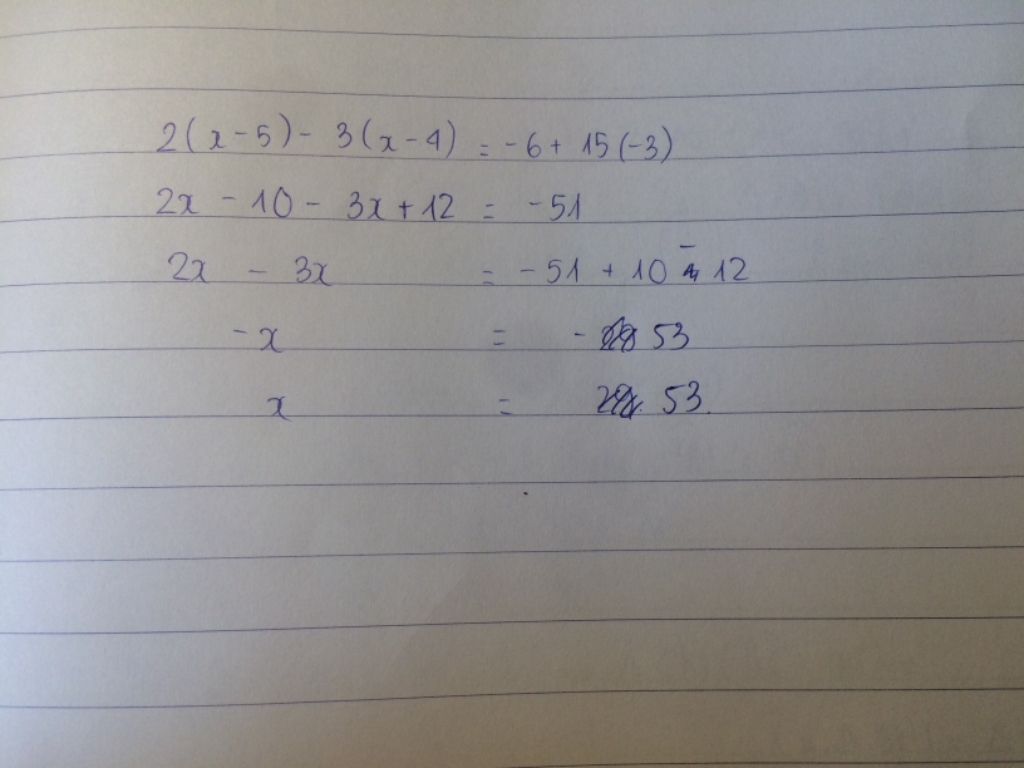 2(x-5)- 3(x-4) = -6+ 15(-3)
2x - 10 - 3x+12 = -51
2x - 3x = -51 + 10 - 12
-x = - 53
x = 53.